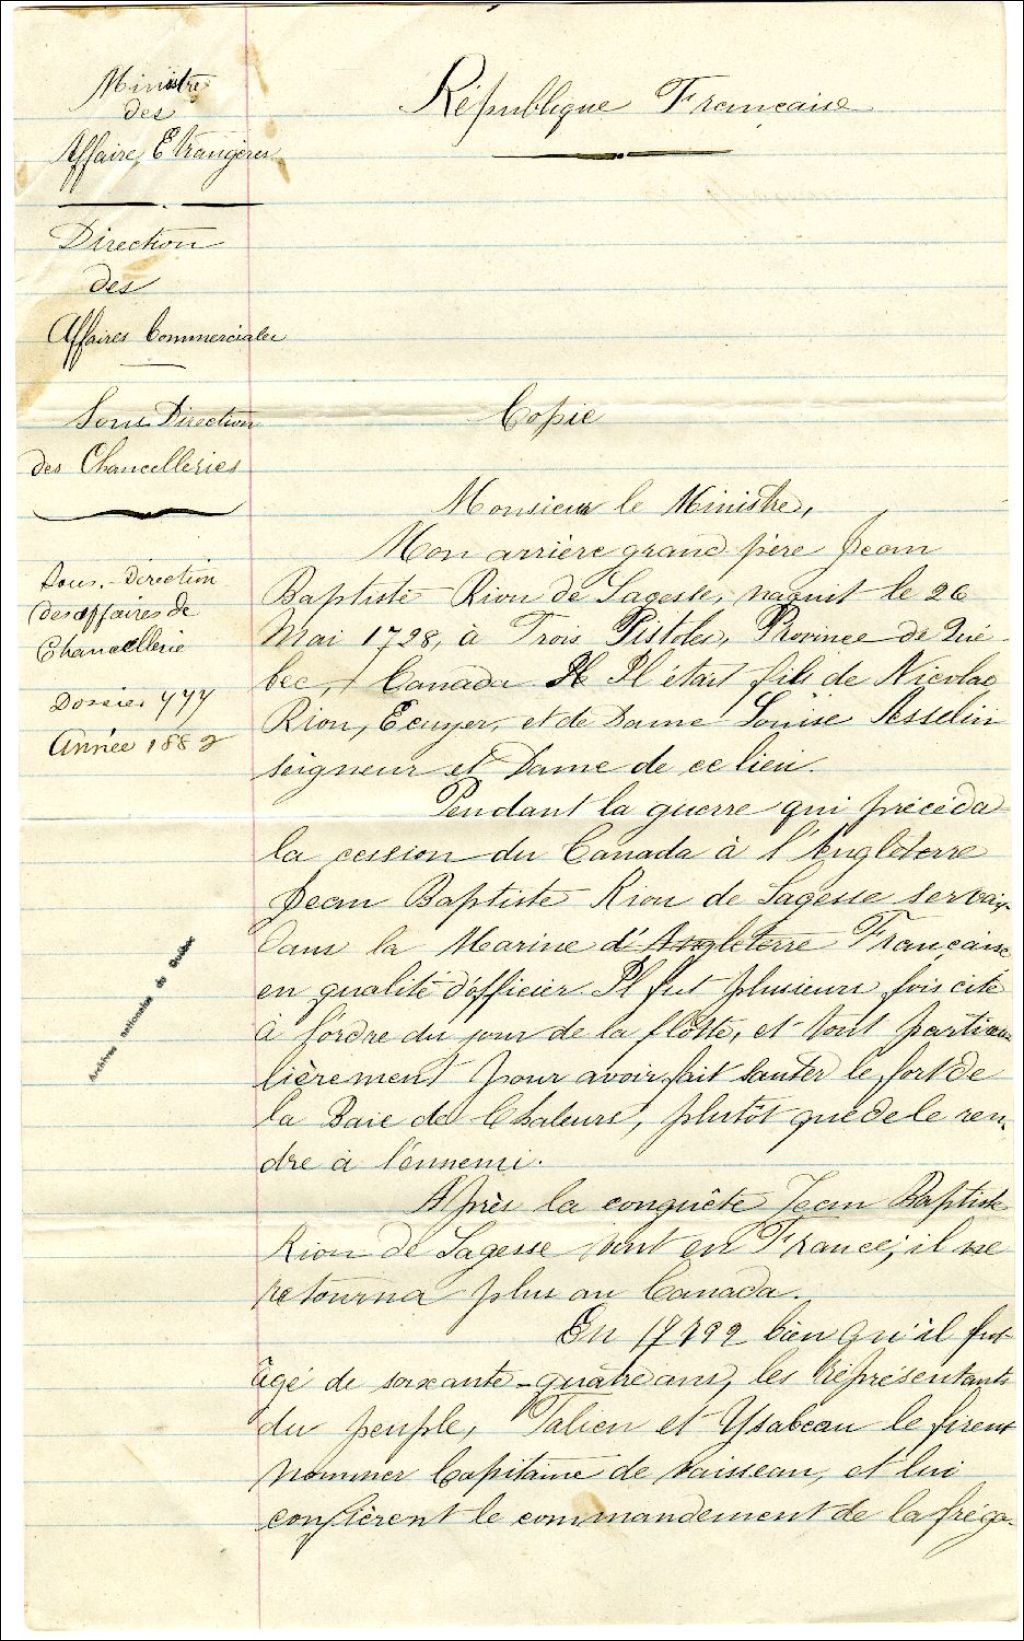 Ministre
des
Affaires Etrangères
Direction
des
Affaires Commerciales
Sous Direction
des Chancelleries
Sous-Direction
des affaires de
Chancellerie
Dossier 777
Année 1882
Archives nationales du Québec
République Française
Copie
Monsieur le Ministre,
Mon arrière grand père Jean
Baptiste Riou de Lagesse, naquit le 26
Mai 1728, à Trois Pistoles, Province de Qué-
bec, Canada Il était fils de Nicolas
Riou, Ecuyer, et de Dame Louise Asselin
seigneur et Dame de ce lieu.
Pendant la guerre qui précéda
la cession du Canada à l'Angleterre
Jean Baptiste Riou de Lagesse servait
dans la Marine d'Angleterre Française
en qualité d'officier. Il fut plusieurs fois cité
à l'ordre du jour de la flotte, et tout particu-
lièrement pour avoir fait sauter le fort de
la Baie de Chaleurs, plutôt que de le ren-
dre à l'ennemi.
Après la conquête Jean Baptiste
Riou de Lagesse vint en France; il ne
retourna plus au Canada.
En 1792 bien qu'il fut
âgé de soixante-quatre ans, les représentants
du peuple, Talien et Ysabeau le firent
nommer Capitaine de vaisseau, et lui
confièrent le commandement de la fréga-